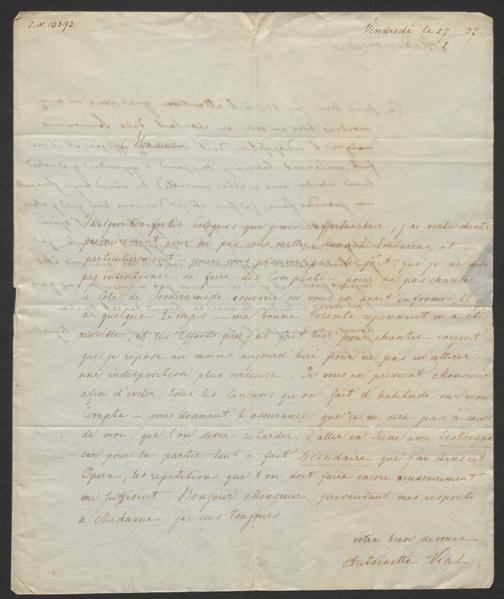 J.N. 10393
Vendredi le 27 32
Monsieur
Malgré de fortes Coliques que j'ai souffertes hier, j'ai voulu chanter
premierement pour ne pas vous mettre dans l'embarras, et
particulierement pour vous prouver par le fait, que je ne suis
pas intentionée de faire des Complots pour ne pas chanter
le rôle de Semiramide comme on vous en avait informés, il y
a quelque temps - ma bonne volonté cependant m'a été
nuisible, et les Efforts que j'ai fait hier pour chanter exigent
que je repose au moins aujourd'hui pour ne pas m'attirer
une indisposition plus serieuse. Je vous en previent Monsieur
afin d'eviter tous les cancans qu'on fait d'habitude sur mon
Compte - vous donnant l'assurance que ce ne sera pas à cause
de moi, que l'on devra retarder d'aller en Scene avec
car pour la partie tout à fait Secondaire que j'ai dans cet
Opera, les repetitions que l'on doit faire encore necessairement
me suffisent. Bonjour Monsieur, presentant mes respects
à Madame je suis toujours
votre bien devouée
Antoinette Vial